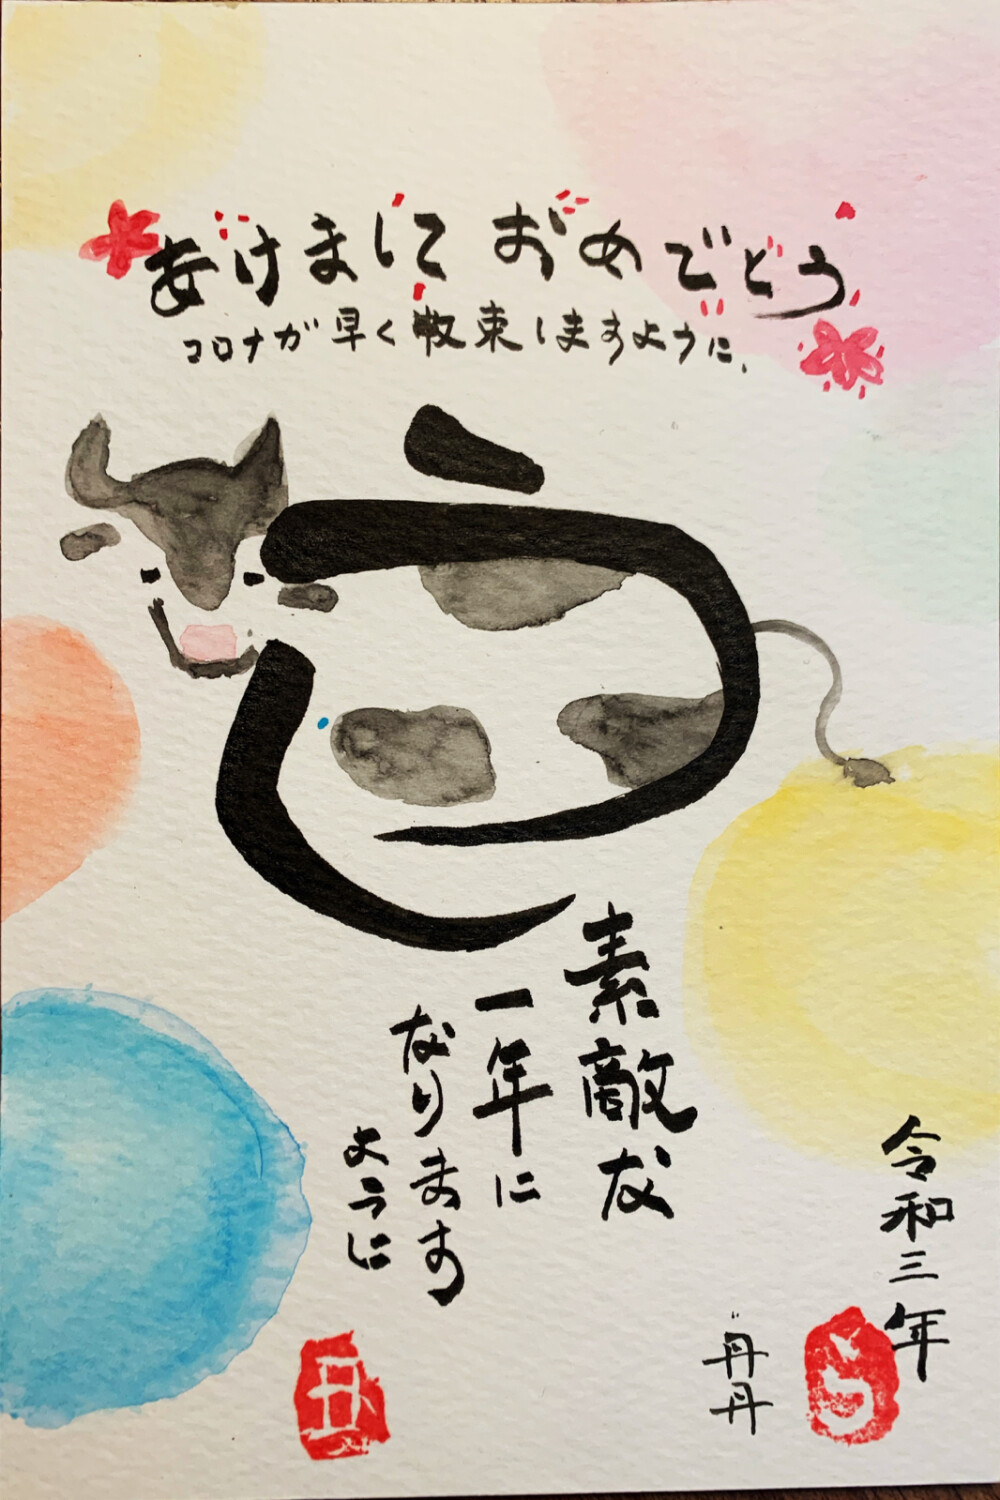 あけましておめでとう
コロナが早く収束しますように、
うし
素敵な
一年に
なります
ように
令和三年
丹丹
うし
丑